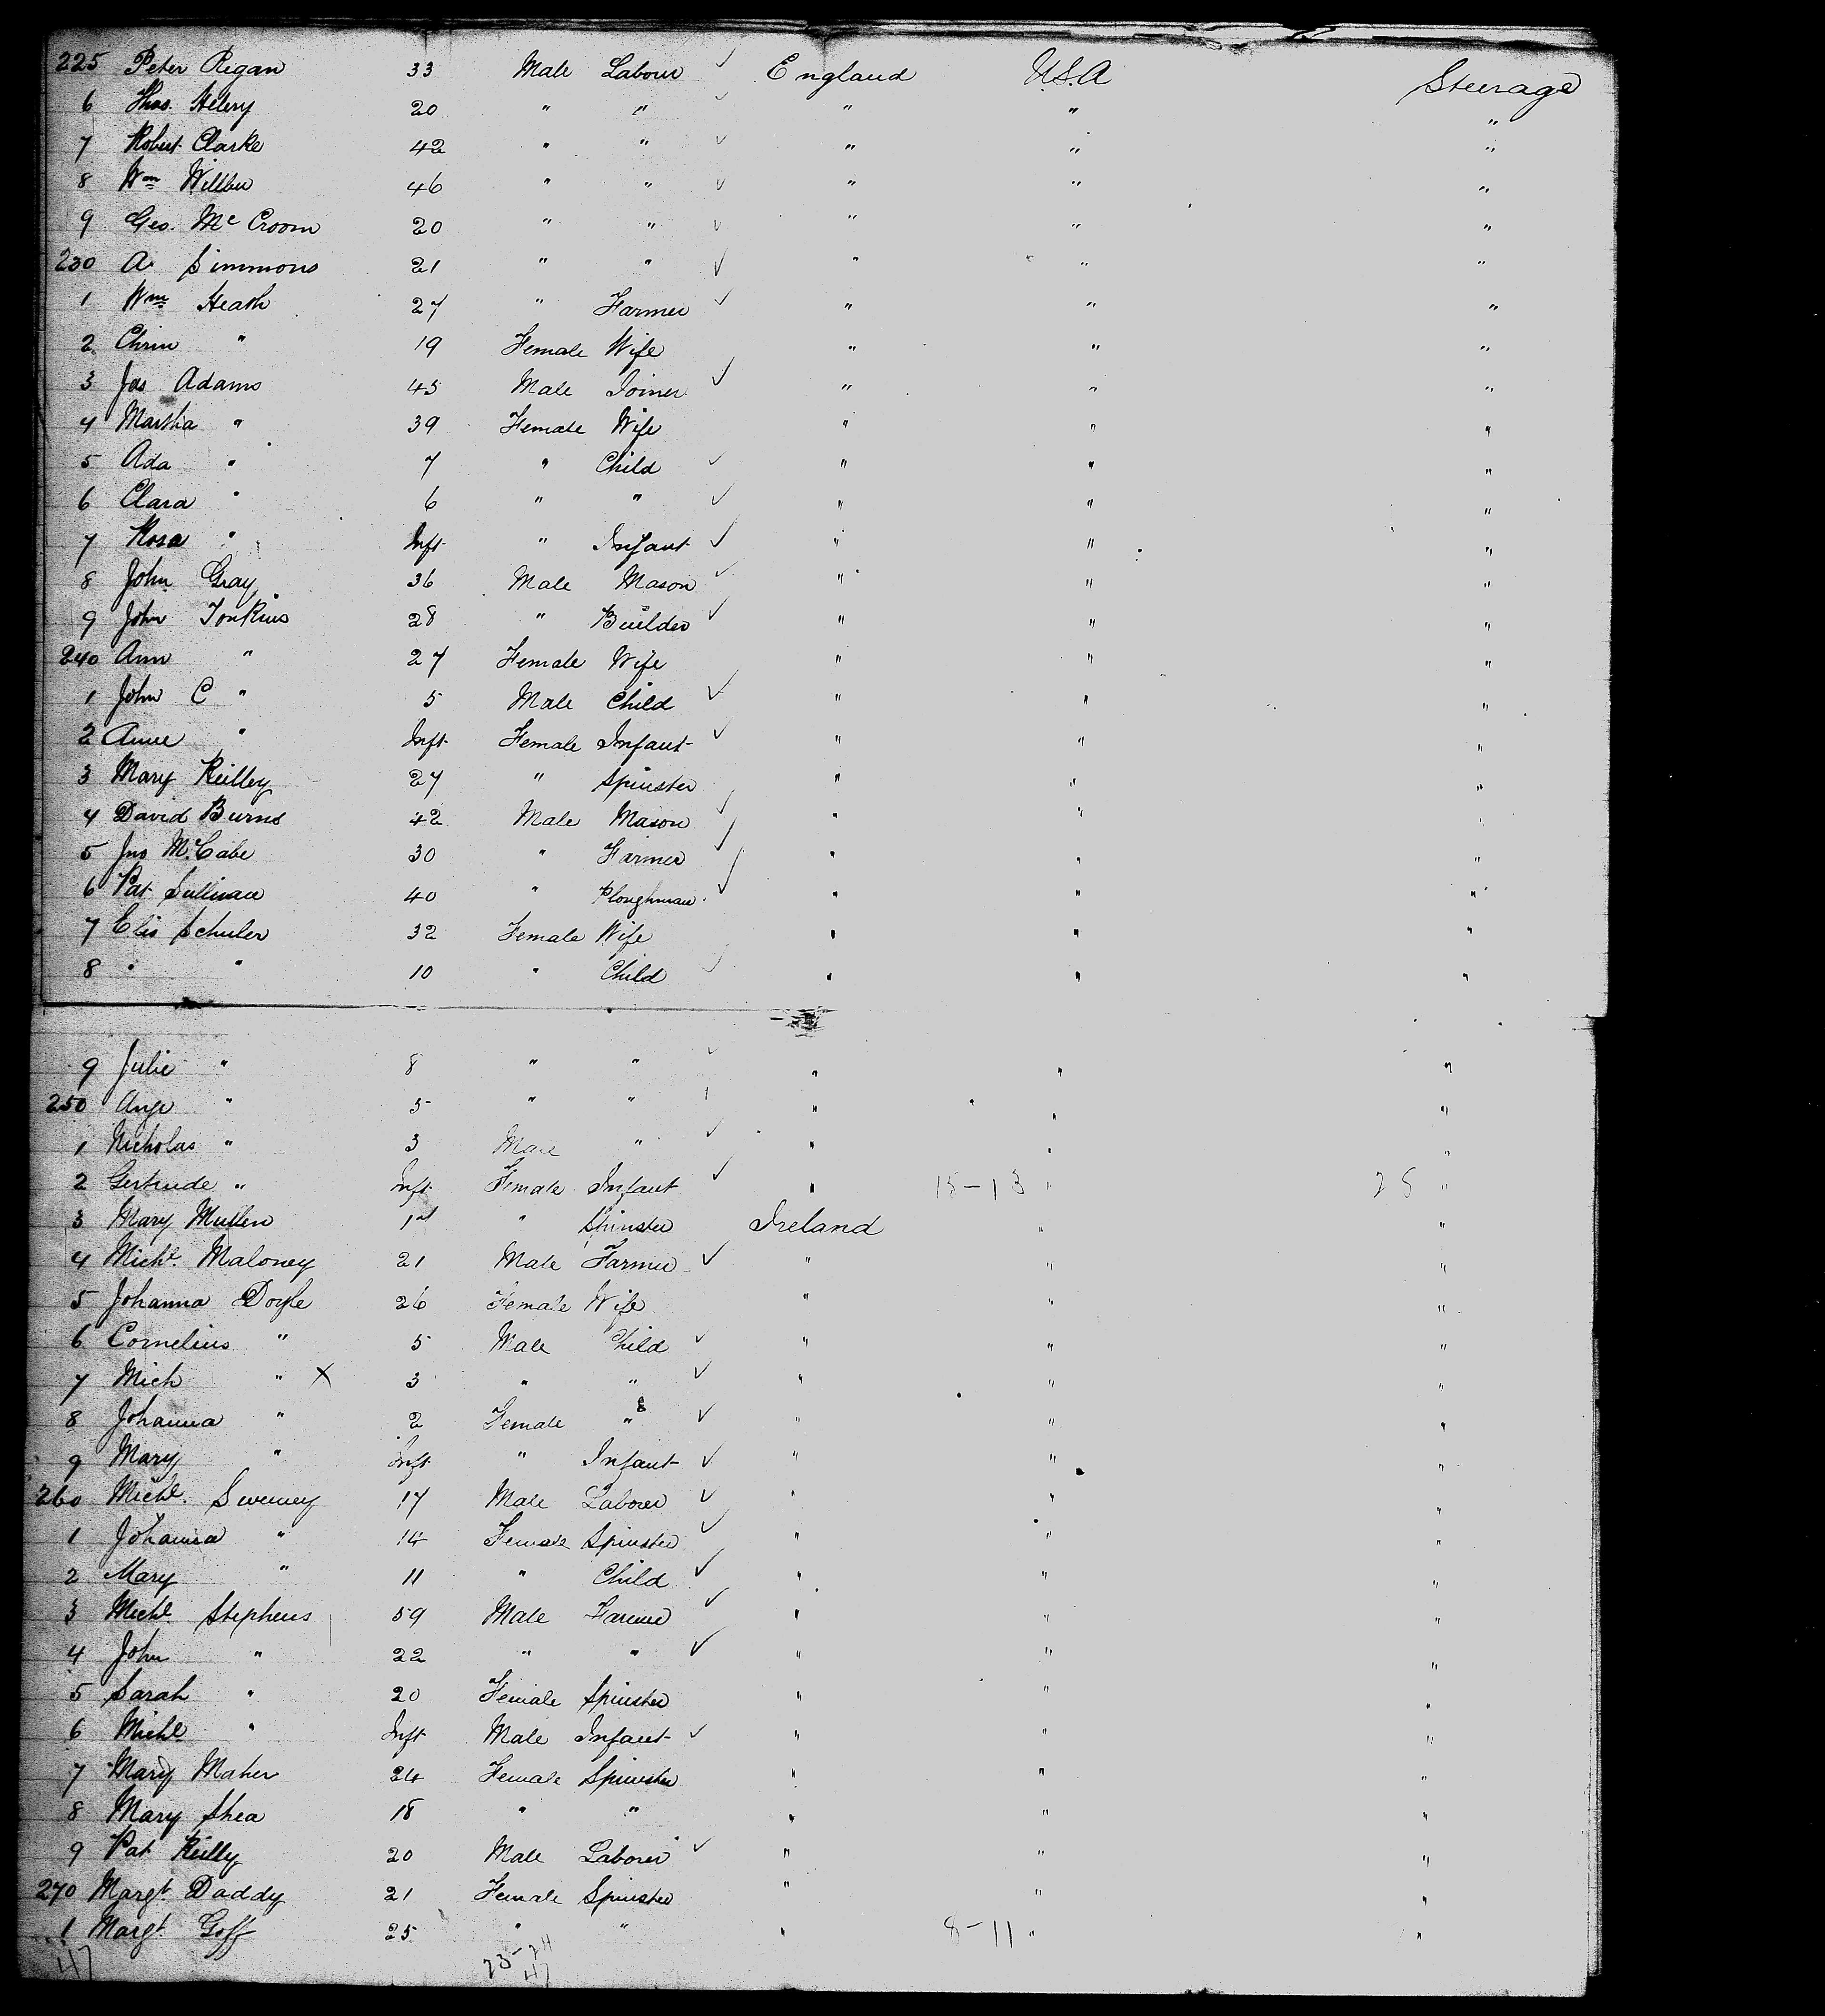 225 Peter Regan 33 Male Labour ✓ England U.S.A Steerage
6 Thos. Helery 20 " " ✓ " " "
7 Robert Clarke 42 " " ✓ " " "
8 Wm Wilber 46 " " ✓ " " "
9 Geo. Mc Croom 20 " " ✓ " " "
230 A. Simmons 21 " " ✓ " " "
1 Wm Heath 27 " Farmer ✓ " " "
2 Chrin " 19 Female Wife " " "
3 Jas Adams 45 Male Joiner ✓ " " "
4 Martha " 39 Female Wife " " "
5 Ada " 7 " Child ✓ " " "
6 Clara " 6 " " ✓ " " "
7 Rosa " Inft " Infant ✓ " " "
8 John Gray 36 Male Mason ✓ " " "
9 John Tonkins 28 " Builder ✓ " " "
240 Ann " 27 Female Wife " " "
1 John C " 5 Male Child ✓ " " "
2 Anne " Inft Female Infant ✓ " " "
3 Mary Reilley 27 " Spinster " " "
4 David Burns 42 Male Mason ✓ " " "
5 Jno McCabe 30 " Farmer ✓ " " "
6 Pat Sullivan 40 " Ploughman ✓ " " "
7 Elis Schuler 32 Female Wife " " "
8 " " 10 " Child ✓ " " "
9 Julie " 8 " " ✓ " " "
250 Ange " 5 " " " " "
1 Nicholas " 3 Male " ✓ " " "
2 Gertrude " Inft Female Infant ✓ " 15-13 " 25 "
3 Mary Mullen " Spinster Ireland " "
4 Michl. Maloney 21 Male Farmer ✓ " " "
5 Johanna Doyle 26 Female Wife " " "
6 Cornelius " 5 Male Child ✓ " " "
7 Mich " X 3 " " ✓ " " "
8 Johanna " 2 Female " ✓ " " "
9 Mary " Inft " Infant ✓ " " "
260 Michl. Sweeney 17 Male Laborer ✓ " " "
1 Johanna " 14 Female Spinster ✓ " " "
2 Mary " 11 " Child ✓ " " "
3 Michl. Stephens 59 Male Farmer ✓ " " "
4 John " 22 " " ✓ " " "
5 Sarah " 20 Female Spinster " " "
6 Michl " Inft Male Infant ✓ " " "
7 Mary Maher 24 Female Spinster " " "
8 Mary Shea 18 " " " " "
9 Pat Reilly 20 Male Laborer ✓ " " "
270 Margt. Daddy 21 Female Spinster " " "
1 Margt. Goff 25 " " " 8-11 " "
47 23-24
47